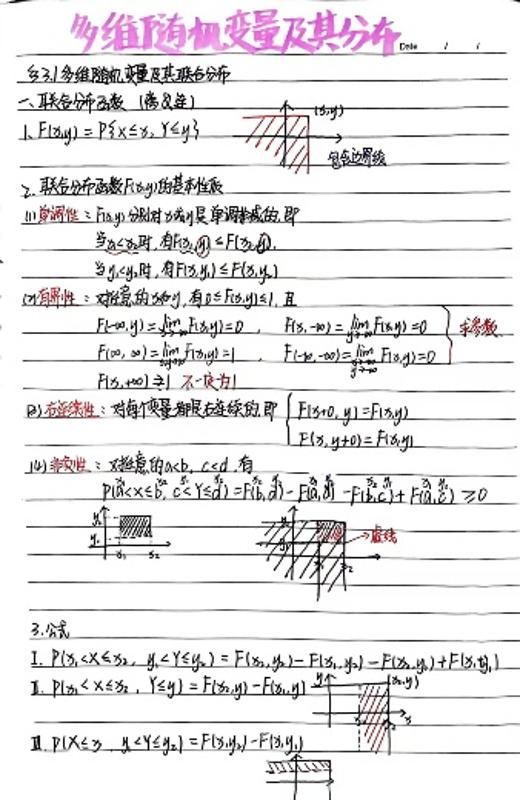 多维随机变量及其分布
Date / /
§3.1 多维随机变量及其联合分布
一、联合分布函数
1、F(x,y) = P{X≤x, Y≤y}
(x,y)
包含边界线
2、联合分布函数F(x,y)的基本性质
(1) 单调性：F(x,y)分别对x或y是单调非减的,即
当x₁<x₂时,有F(x₁,y) ≤ F(x₂,y).
当y₁<y₂时,有F(x,y₁) ≤ F(x,y₂)
(2) 有界性：对任意的x和y,有0≤F(x,y)≤1,且
F(-∞,y) = lim x→-∞ F(x,y) = 0 , F(x,-∞) = lim y→-∞ F(x,y) = 0
F(∞,∞) = lim F(x,y) = 1 , F(-∞,-∞) = lim F(x,y) = 0
求参数
F(x,+∞) ≠ 1 不一定为1
(3) 右连续性：对每个变量都是右连续的,即
F(x+0, y) = F(x,y)
F(x, y+0) = F(x,y)
(4) 非负性：对任意的a<b, c<d,有
P(a<X≤b, c<Y≤d) = F(b,d) - F(a,d) - F(b,c) + F(a,c) ≥ 0
y₂
y₁
x₁ x₂
虚线
3.公式
Ⅰ. P(x₁<X≤x₂, y₁<Y≤y₂) = F(x₂,y₂) - F(x₁,y₂) - F(x₂,y₁) + F(x₁,y₁)
Ⅱ. P(x₁<X≤x₂, Y≤y) = F(x₂,y) - F(x₁,y)
y
(x₂,y)
x
Ⅲ. P(X≤x, y₁<Y≤y₂) = F(x,y₂) - F(x,y₁)